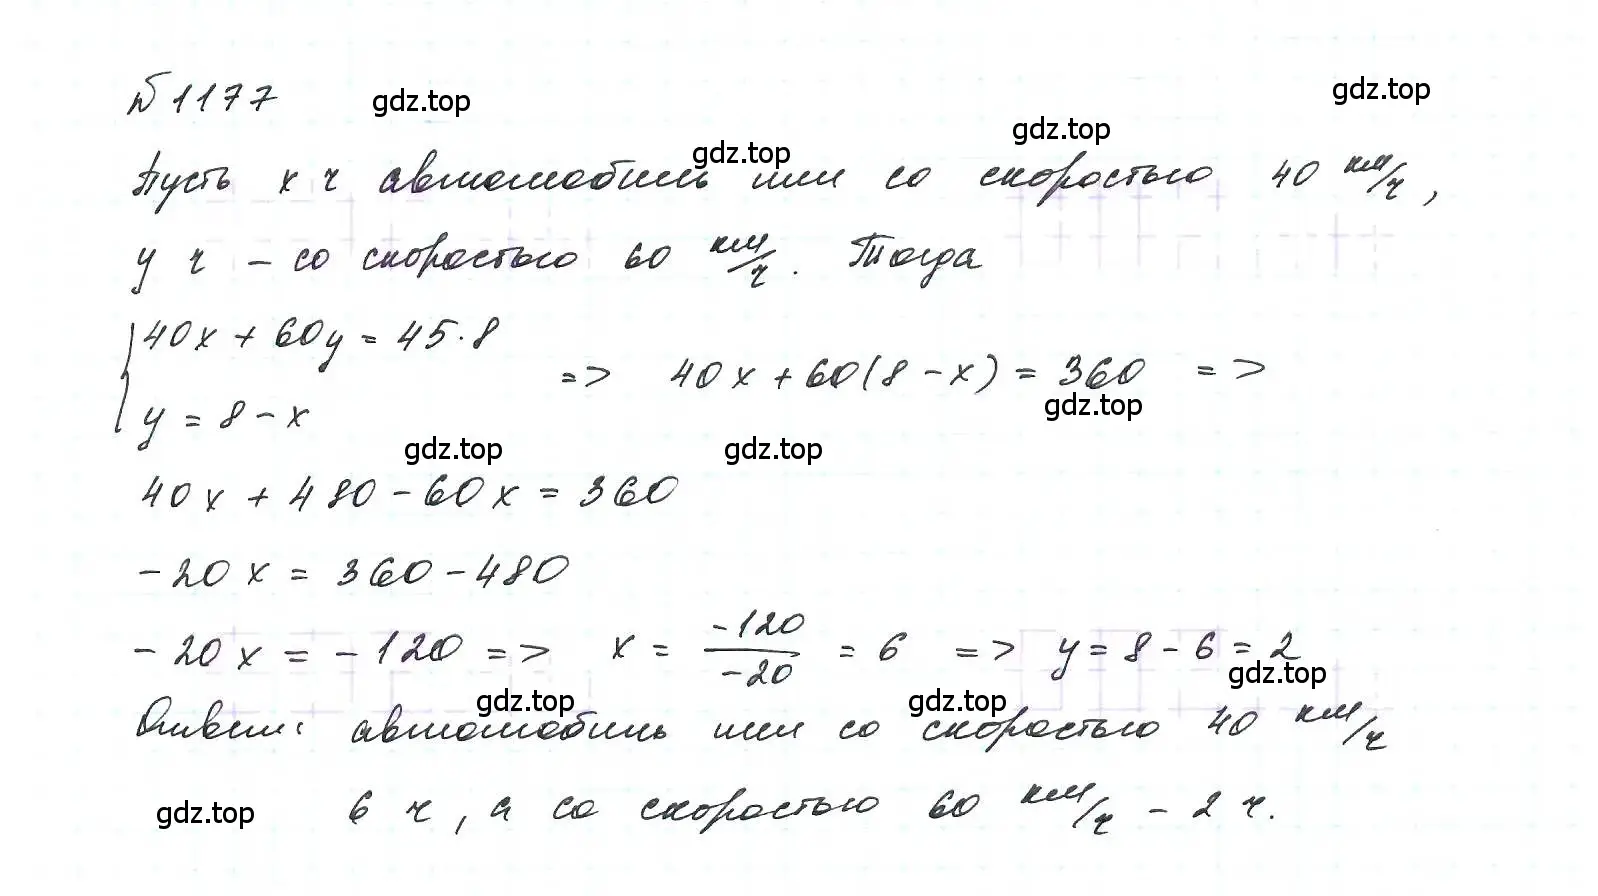 № 1177 gdz.top gdz.top
gdz.top gdz.top
Пусть х ч автомобиль шел со скоростью 40 км/ч,
у ч – со скоростью 60 км/ч. Тогда
40x + 60y = 45·8
=> 40x + 60(8 - x) = 360 =>
gdz.top
y = 8 - x
gdz.top gdz.top
40x + 480 - 60x = 360
-20x = 360 - 480
-20x = -120 => x = -120/-20 = 6 => y = 8 - 6 = 2
gdz.top gdz.top gdz.top
Ответ: автомобиль шел со скоростью 40 км/ч
gdz.top 6 ч, а со скоростью 60 км/ч - 2 ч.